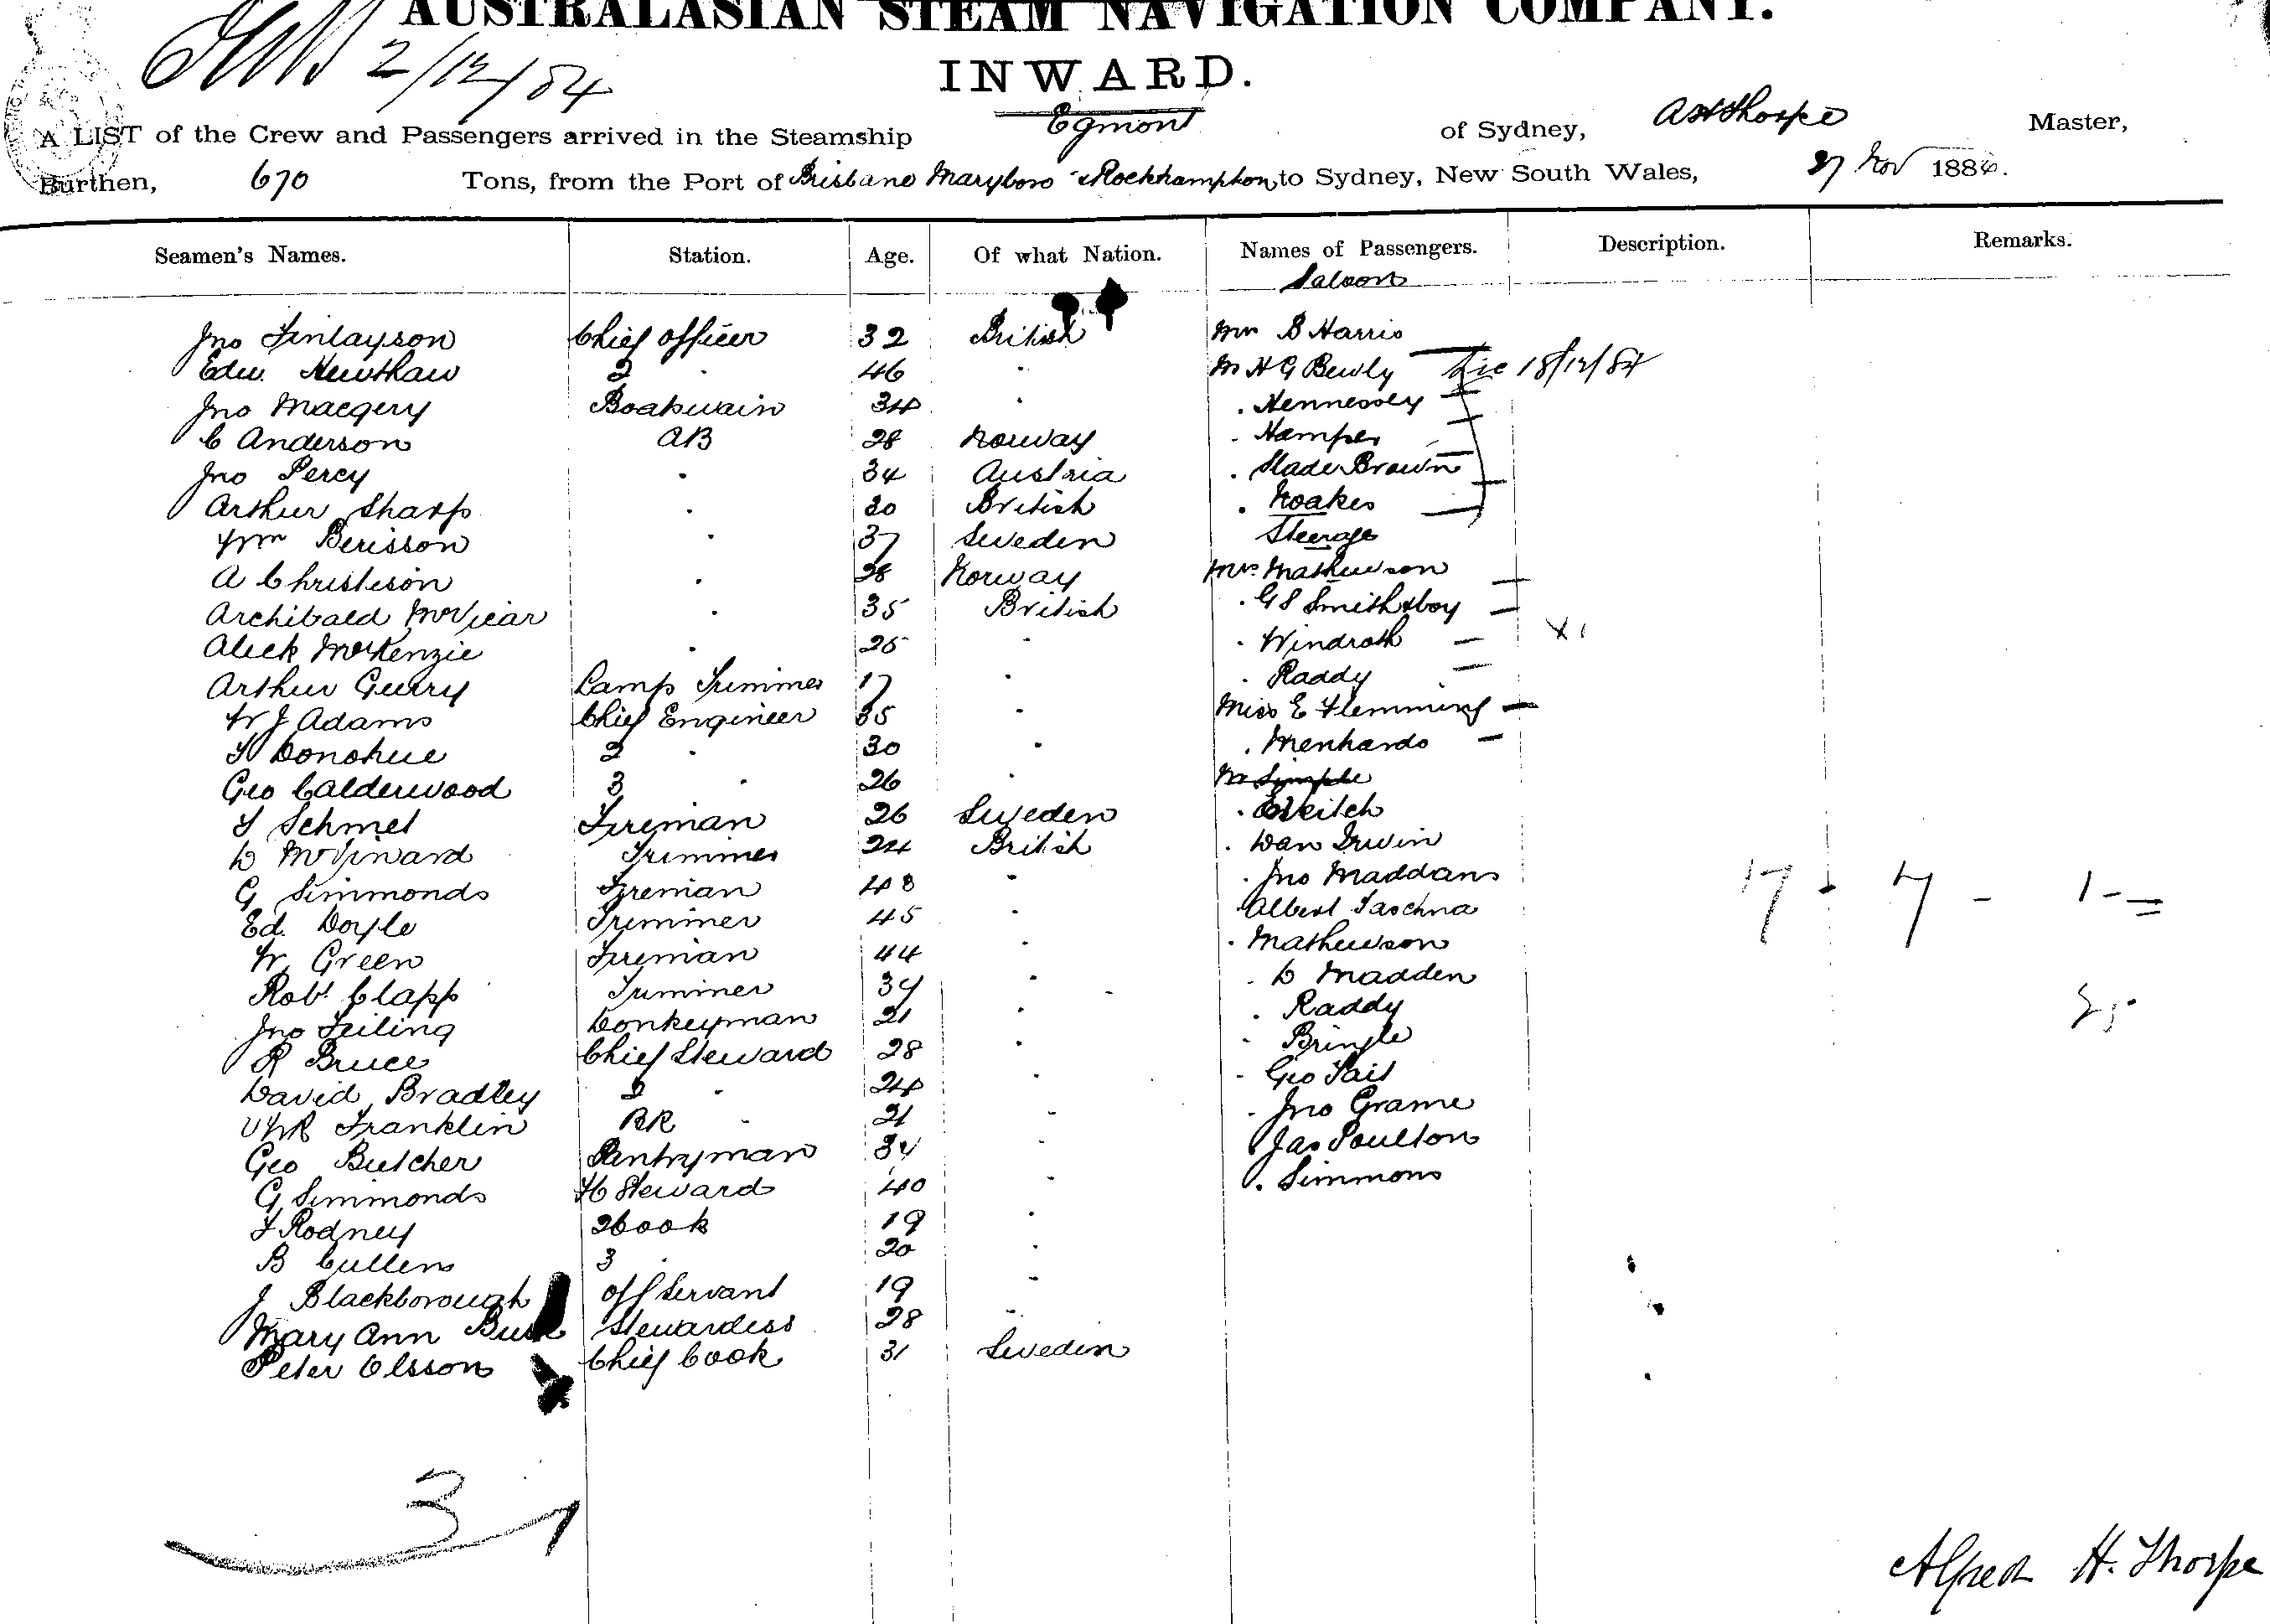 AUSTRALASIAN STEAM NAVIGATION COMPANY.
2/12/84
INWARD.
A LIST of the Crew and Passengers arrived in the Steamship Egmont of Sydney, A H Thorpe Master,
Burthen, 670 Tons, from the Port of Brisbane Maryboro & Rockhampton to Sydney, New South Wales, 27 Nov 1884.
Seamen's Names. Station. Age. Of what Nation. Names of Passengers. Description. Remarks.
Saloon
Jno Finlayson Chief officer 32 British Mr B Harris
Edw. Hewthaw 2 " 46 " Mr H G Bewly 18/12/84
Jno Macgery Boatswain 34 " " Hennessey
C Anderson AB 28 Norway " Hamper
Jno Percy " 34 Austria " Slade Brown
Arthur Sharp " 30 British " Noakes
Wm Berisson " 37 Sweden Steerage
A Christison " 28 Norway Mrs Mathewson
Archibald McVicar " 35 British " G S Smith & boy
Aleck McKenzie " 25 " " Windroth
Arthur Guerry Lamp Trimmer 17 " " Raddy
W J Adams Chief Engineer 35 " Miss E Flemming
T Donohue 2 " 30 " " Menhardo
Geo Calderwood 3 " 26 " Mr Simple
F Schmel Fireman 26 Sweden " Veitch
D Trimmer 24 British " Dan Irwin
G Simmonds Fireman 48 " " Jno Maddans 17 - 7 - 1 - =
Ed. Doyle Trimmer 45 " Albert Taschna
W. Green Fireman 44 " " Mathewson
Robt Clapp Trimmer 39 " " D Madden
Jno Feiling Donkeyman 21 " " Raddy 25
R Bruce Chief Steward 28 " " Pringle
David Bradley 2 " 24 " " Geo Tait
Franklin BR " 21 " " Jno Grame
Geo Butcher Pantryman 34 " Jas Poulton
G Simmonds F C Steward 40 " " Simmons
F Rodney 2 Cook 19 "
B Cullen 3 " 20 "
J Blackborough off Servant 19 "
Mary Ann Stewardess 28 "
Peter Olsson Chief Cook 31 Sweden
31
Alfred H. Thorpe